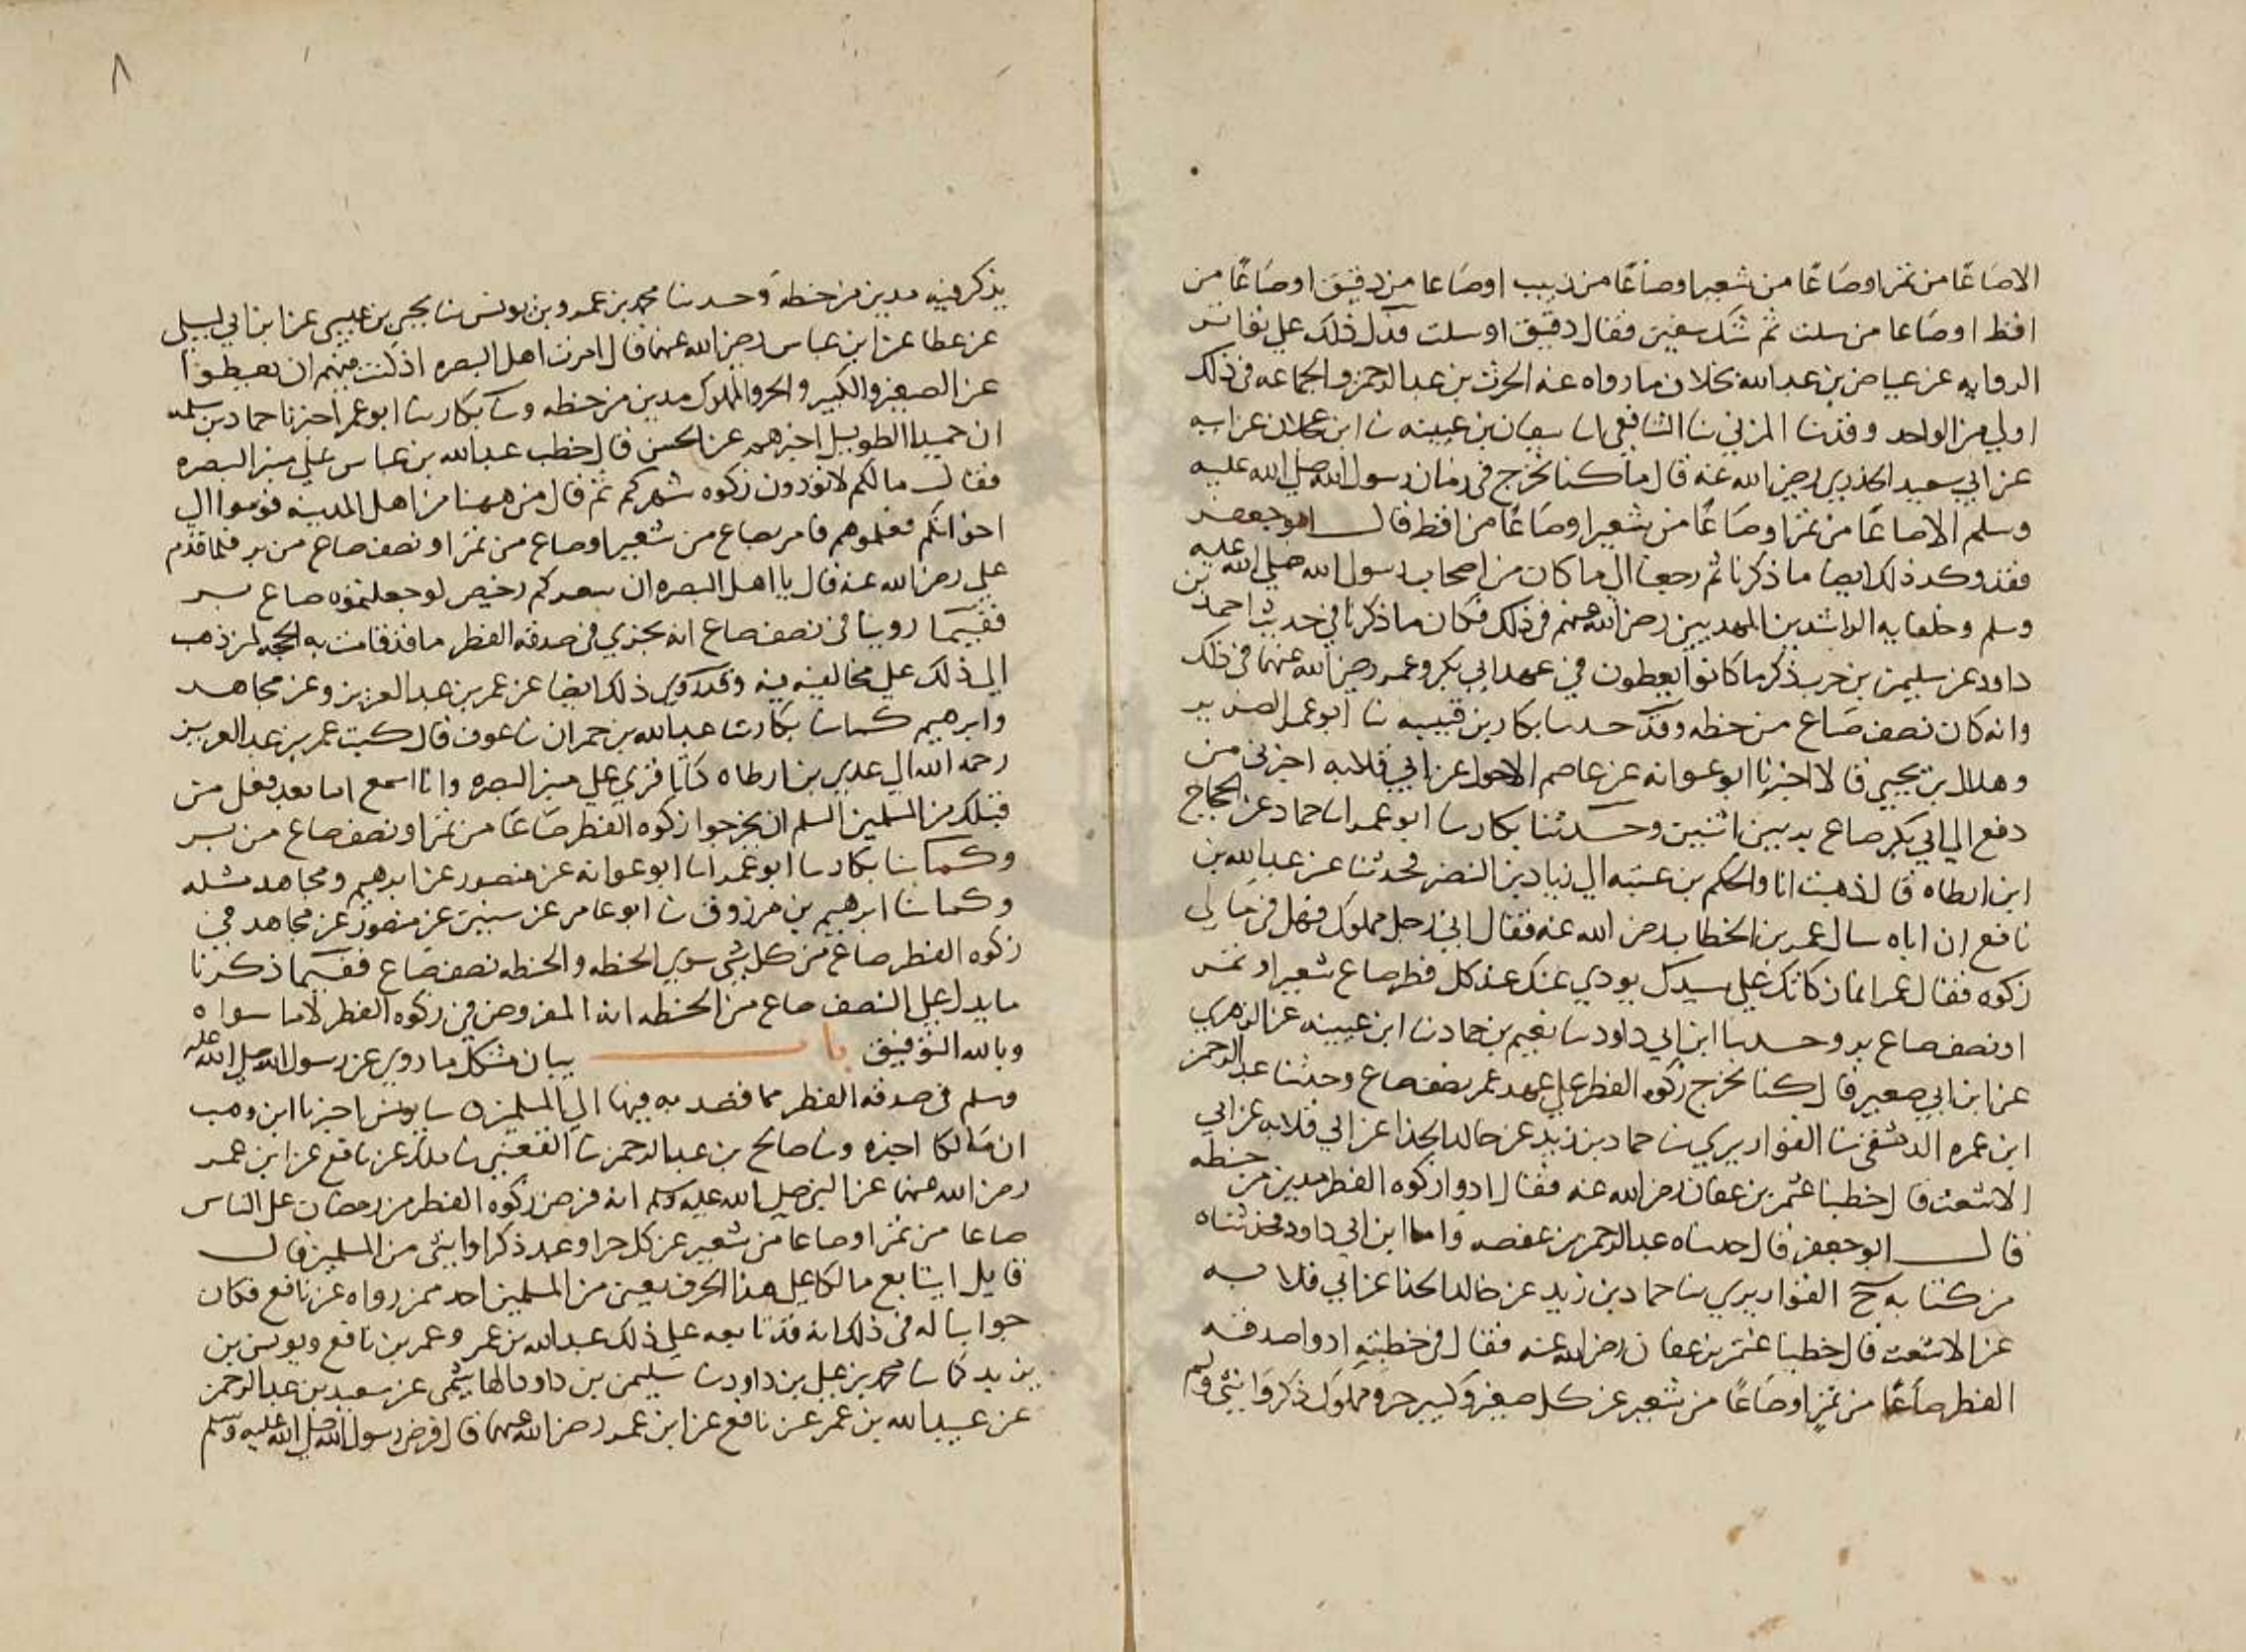 الا صاعًا من تمر او صاعًا من شعير او صاعًا من زبيب او صاعا من دقيق او صاعًا من
اقط او صاعا من سلت ثم شك سفين فقال دقيق او سلت فدل ذلك على
الروايه عن عياض بن عبد الله بخلاف ما رواه عنه الحرث بن عبد الرحمن والجماعه في ذلك
اولي من الواحد وقد نا المزني نا الشافعي انا سفيان بن عيينه نا ابن عجلان عن ابيه
عن ابي سعيد الخدري رضي الله عنه قال ما كنا نخرج في زمان رسول الله صلى الله عليه
وسلم الا صاعًا من تمر او صاعًا من شعير او صاعًا من اقط قال ابو جعفر
فقد وكد ذلك ايضا ما ذكرنا ثم رجعنا الي ما كان من اصحاب رسول الله صلي الله عليه
وسلم وخلفايه الراشدين المهديين رضي الله عنهم في ذلك فكان ما ذكرنا في حديث احمد بن
داود عن سليمن بن حرب ذكر ما كانوا يعطون في عهد ابي بكر وعمر رضي الله عنهما في ذلك
وانه كان نصف صاع من حنطه وقد حدسا بكار بن قتيبه نا ابو عمر الضرير
وهلال بن يحيي قالا اخبرنا ابو عوانه عن عاصم الاحول عن ابي قلابه اخبرني من
دفع الي ابي بكر صاع بر بين اثنين وحدثنا بكار سا ابو عمر انا حماد عن الحجاج
ابن ارطاه قال ذهبت انا والحكم بن عتيبه الي زياد بن النضر فحدثنا عن عبد الله بن
نافع ان اباه سال عمر بن الخطاب رضي الله عنه فقال اني رجل مملوك فهل في مالي
زكوه فقال عمر انما زكاتك علي سيدك يودي عنك عند كل فطر صاع شعير او تمر
او نصف صاع بر وحدسا ابن ابي داود سا نعيم بن حماد نا ابن عيينه عن الزهري
عن ابن ابي صعير قال كنا نخرج زكوه الفطر علي عهد عمر نصف صاع وحدثنا عبد الرحمن
ابن عمره الدمشقي نا القواريري نا حماد بن زيد عن خالد الحذا عن ابي قلابه عن ابي
الاشعث قال خطبنا عثمن بن عفان رضي الله عنه فقال ادوا زكوه الفطر مدين من حنطه
قال ابو جعفر قال حدساه عبد الرحمن بن عفصه واما ابن ابي داود فحدثناه
من كتابه نا القواريري سا حماد بن زيد عن خالد الحذا عن ابي قلابه
عن الاشعث قال خطبنا عثمن بن عفان رضي الله عنه فقال في خطبته ادوا صدقه
الفطر صاعًا من تمر او صاعًا من شعير عن كل صغير وكبير حر ومملوك ذكر وانثي ولم
٨
يذكر فيه مدين من حنطه وحدسا محمد بن عمرو بن يونس نا يحيي بن عيسي عن ابن ابي ليلي
عن عطا عن ابن عباس رضي الله عنهما قال امرت اهل البصره اذ كنت فيهم ان يعطوا
عن الصغير والكبير والحر والمملوك مدين من حنطه وسا بكار سا ابو عمر اخبرنا حماد بن سلمه
ان حميدا الطويل اخبرهم عن الحسن قال خطب عبد الله بن عباس علي منبر البصره
فقال مالكم لا تودون زكوه شهركم ثم قال من ههنا من اهل المدينه قوموا الي
اخوانكم فعلموهم فامر بصاع من شعير او صاع من تمر او نصف صاع من بر فلما قدم
علي رضي الله عنه قال يا اهل البصره ان سعركم رخيص لو جعلتموه صاع بر
ففيما روينا في نصف صاع انه يجزي في صدقه الفطر ما قد قامت به الحجه لمن ذهب
الي ذلك علي مخالفيه فيه وقد روي ذلك ايضا عن عمر بن عبد العزيز وعن مجاهد
وابرهيم كما نا بكار سا عبد الله بن حمران نا عوف قال كتب عمر بن عبد العزيز
رحمه الله الي عدي بن ارطاه كتابا قري علي منبر البصره وانا اسمع اما بعد فعل من
قبلك من المسلمين السلم ان يخرجوا زكوه الفطر صاعًا من تمر او نصف صاع من بر
وكما سا بكار سا ابو عمر انا ابو عوانه عن منصور عن ابرهيم ومجاهد مثله
وكما نا ابرهيم بن مرزوق نا ابو عامر عن سفين عن منصور عن مجاهد في
زكوه الفطر صاع من كل شي سوي الحنطه والحنطه نصف صاع ففيما ذكرنا
ما يدل علي النصف صاع من الحنطه انه المفروض في زكوه الفطر لا ما سواه
وبالله التوفيق باب بيان مشكل ما روي عن رسول الله صلي الله عليه
وسلم في صدقه الفطر مما قصد به فيها الي المسلمين ه سا يونس اخبرنا ابن وهب
ان مالكا اخبره ونا صالح بن عبد الرحمن نا القعنبي نا ملك عن نافع عن ابن عمر
رضي الله عنهما عن النبي صلي الله عليه وسلم انه فرض زكوه الفطر من رمضان علي الناس
صاعا من تمر او صاعا من شعير عن كل حر او عبد ذكر او انثي من المسلمين قال
قايل ايتابع مالكا علي هذا الحرف يعني من المسلمين احد ممن رواه عن نافع فكان
جوابنا له في ذلك انه قد تابعه علي ذلك عبد الله بن عمر وعمر بن نافع ويونس بن
يزيد كما سا محمد بن علي بن داود سا سليمن بن داود الهاشمي عن سعيد بن عبد الرحمن
عن عبيد الله بن عمر عن نافع عن ابن عمر رضي الله عنهما قال فرض رسول الله صلي الله عليه وسلم